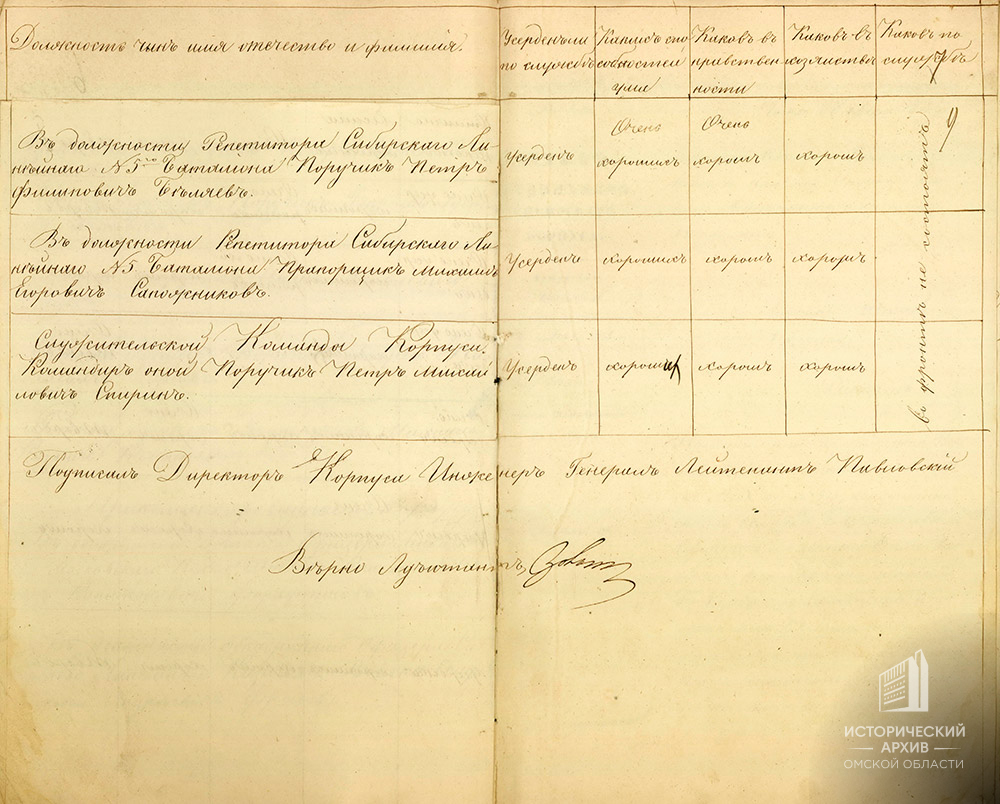 Должность чинъ имя отечество и фамилия.
Усерденъ ли по службѣ
Какихъ способностей ума
Каковъ въ нравственности
Каковъ въ хозяйствѣ
Каковъ по службѣ
7
9
Въ должности Репетитора Сибирскаго Ли-
нѣйнаго №5го Баталіона Поручикъ Петръ
Филиповичъ Бѣляевъ.
Усерденъ
Очень хорошихъ
Очень хорошъ
хорошъ
Въ должности Репетитора Сибирскаго Ли-
нѣйнаго №5 Баталіона Прапорщикъ Михаилъ
Егоровичъ Сапожниковъ.
Усерденъ
хорошихъ
хорошъ
хорошъ
Служительской Команды Корпуса.
Командиръ оной Поручикъ Петръ Михай
ловичъ Спиринъ.
Усерденъ
хороших
хорошъ
хорошъ
въ фронтѣ не состоятъ
Подписалъ Директоръ Корпуса Инженеръ Генералъ Лейтенантъ Павловскій
Вѣрно Адъютантъ
ИСТОРИЧЕСКИЙ
АРХИВ
ОМСКОЙ ОБЛАСТИ